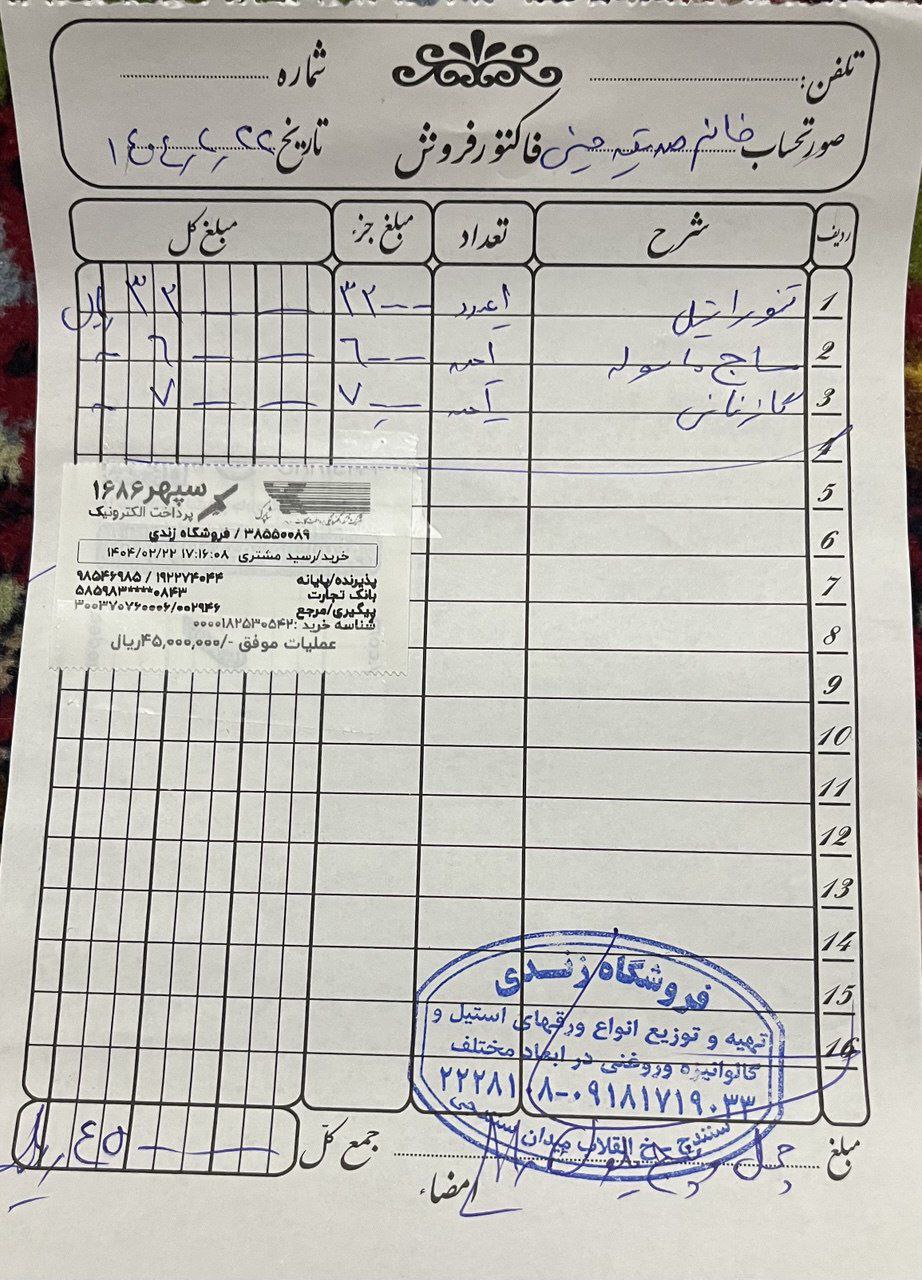 تلفن: شماره
صورتحساب خانم صدیقه حسینی فاکتور فروش تاریخ ۱۴۰۴/۲/۲۲
ردیف شرح تعداد مبلغ جزء مبلغ کل
1 تنور استیل ۱عدد ۳۲-- ۳۲ — — ریال
2 ساج با ۱عدد ۶-- ۶ — — ~
3 گاز ۱عدد ۷-- ۷ — — ~
4
5
6
7
8
9
10
11
12
13
14
15
16
سپهر ۱۶۸۶
پرداخت الکترونیک
شاپرک
۳۸۵۵۰۰۸۹ / فروشگاه زندی
خرید/رسید مشتری ۱۷:۱۶:۰۸ ۱۴۰۴/۰۲/۲۲
پذیرنده/پایانه ۱۹۲۲۷۴۰۴۴ / ۹۸۵۴۶۹۸۵
بانک تجارت ۵۸۵۹۸۳****۰۸۴۳
پیگیری/مرجع ۳۰۰۳۷۰۷۶۰۰۰۶/۰۰۲۹۴۶
شناسه خرید :۰۰۰۰۱۸۲۵۳۰۵۴۲
عملیات موفق -/۴۵,۰۰۰,۰۰۰ریال
فروشگاه زندی
تهیه و توزیع انواع ورقهای استیل و
گالوانیزه وروغنی در ابعاد مختلف
۲۲۲۸۱۰۸-۰۹۱۸۱۷۱۹۰۳۳
سنندج میدان
مبلغ چهل و پنج میلیون جمع کل ۴۵ — — ریال
امضاء